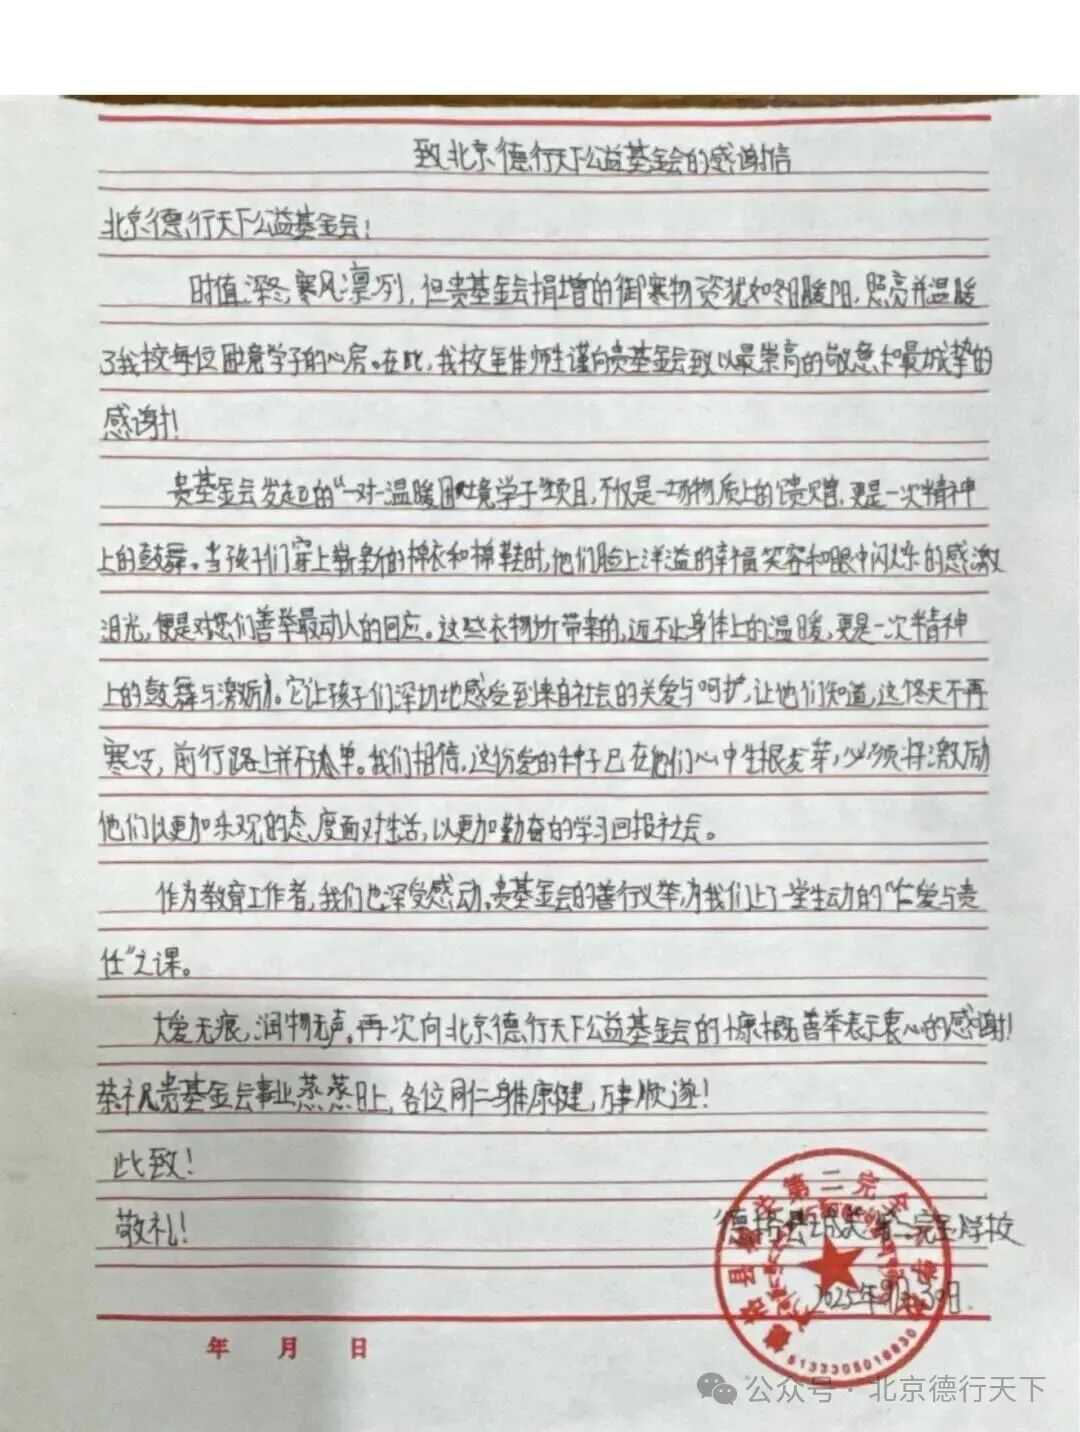 致北京德行天下公益基金会的感谢信
北京德行天下公益基金会！
时值深冬，寒风凛冽，但贵基金会捐增的御寒物资犹如冬日暖阳，照亮并温暖
了我校每位困境学子的心房。在此，我校全体师生谨向贵基金会致以最崇高的敬意和最诚挚的
感谢！
贵基金会发起的“一对一温暖困境学子”项目，不仅是一场物质上的馈赠，更是一次精神
上的鼓舞。当孩子们穿上崭新的棉衣和棉鞋时，他们脸上洋溢的幸福笑容和眼中闪烁的感激
泪光，便是对您们善举最动人的回应。这些衣物所带来的，远不止身体上的温暖，更是一次精神
上的鼓舞与激励。它让孩子们深切地感受到来自社会的关爱与呵护，让他们知道，这个冬天不再
寒冷，前行路上并不孤单。我们相信，这份爱的种子已在他们心中生根发芽，必须将激励
他们以更加乐观的态度面对生活，以更加勤奋的学习回报社会。
作为教育工作者，我们也深受感动。贵基金会的善行义举，为我们上了一堂生动的“仁爱与责
任”之课。
大爱无痕，润物无声。再次向北京德行天下公益基金会的慷慨善举表示衷心的感谢！
恭祝贵基金会事业蒸蒸日上，各位同仁身体康健，万事顺遂！
此致！
敬礼！
德格县城关第二完全小学校
2025年12月30日
年 月 日
5133305018830
公众号 · 北京德行天下